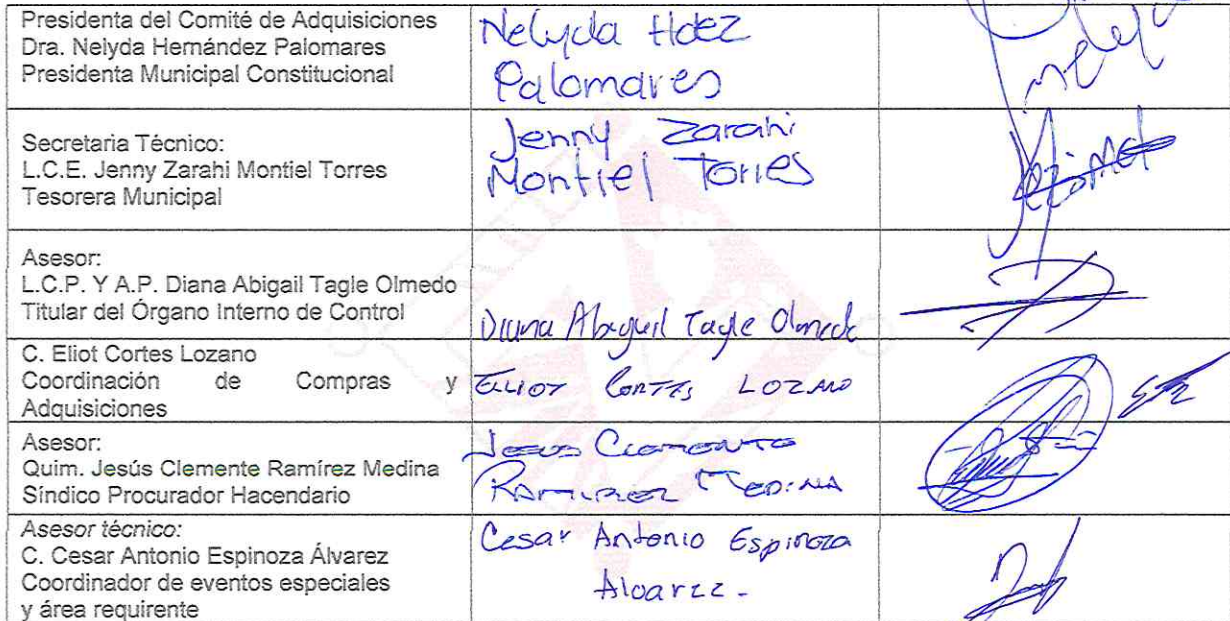 Presidenta del Comité de Adquisiciones
Dra. Nelyda Hernández Palomares
Presidenta Municipal Constitucional
Nelyda Hdez
Palomares
Secretaria Técnico:
L.C.E. Jenny Zarahi Montiel Torres
Tesorera Municipal
Jenny Zarahi
Montiel Torres
Asesor:
L.C.P. Y A.P. Diana Abigail Tagle Olmedo
Titular del Órgano Interno de Control
Diana Abiguil Tagle Olmedo
C. Eliot Cortes Lozano
Coordinación de Compras y
Adquisiciones
ELLIOT CORTES LOZANO
Asesor:
Quim. Jesús Clemente Ramírez Medina
Síndico Procurador Hacendario
JESUS CLEMENTE
RAMIREZ MEDINA
Asesor técnico:
C. Cesar Antonio Espinoza Álvarez
Coordinador de eventos especiales
y área requirente
Cesar Antonio Espinoza
Alvarez.